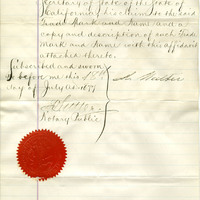 Secretary of State of the State of
California his claim to the said
Trade Mark and Name and a
copy and description of such Trade
Mark and Name with this affidavit
attached thereto.
Subscribed and sworn
to before me this 18th
day of July A.D. 1877
Notary Public